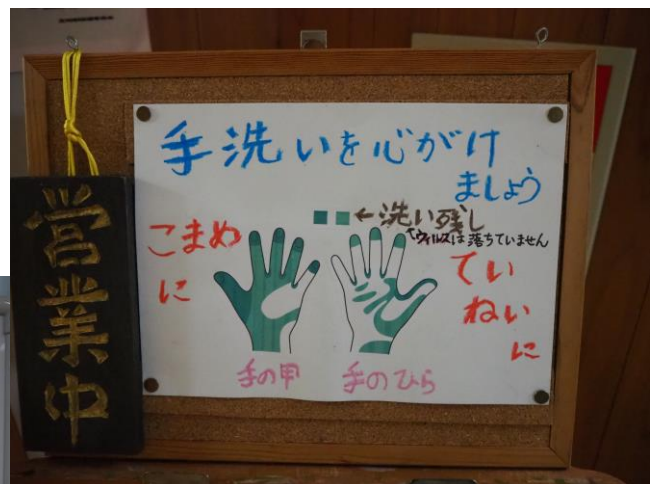 手洗いを心がけ
ましょう
←洗い残し
↑ウィルスは落ちていません
こまめ
に
てい
ねい
に
手の甲
手のひら
営業中